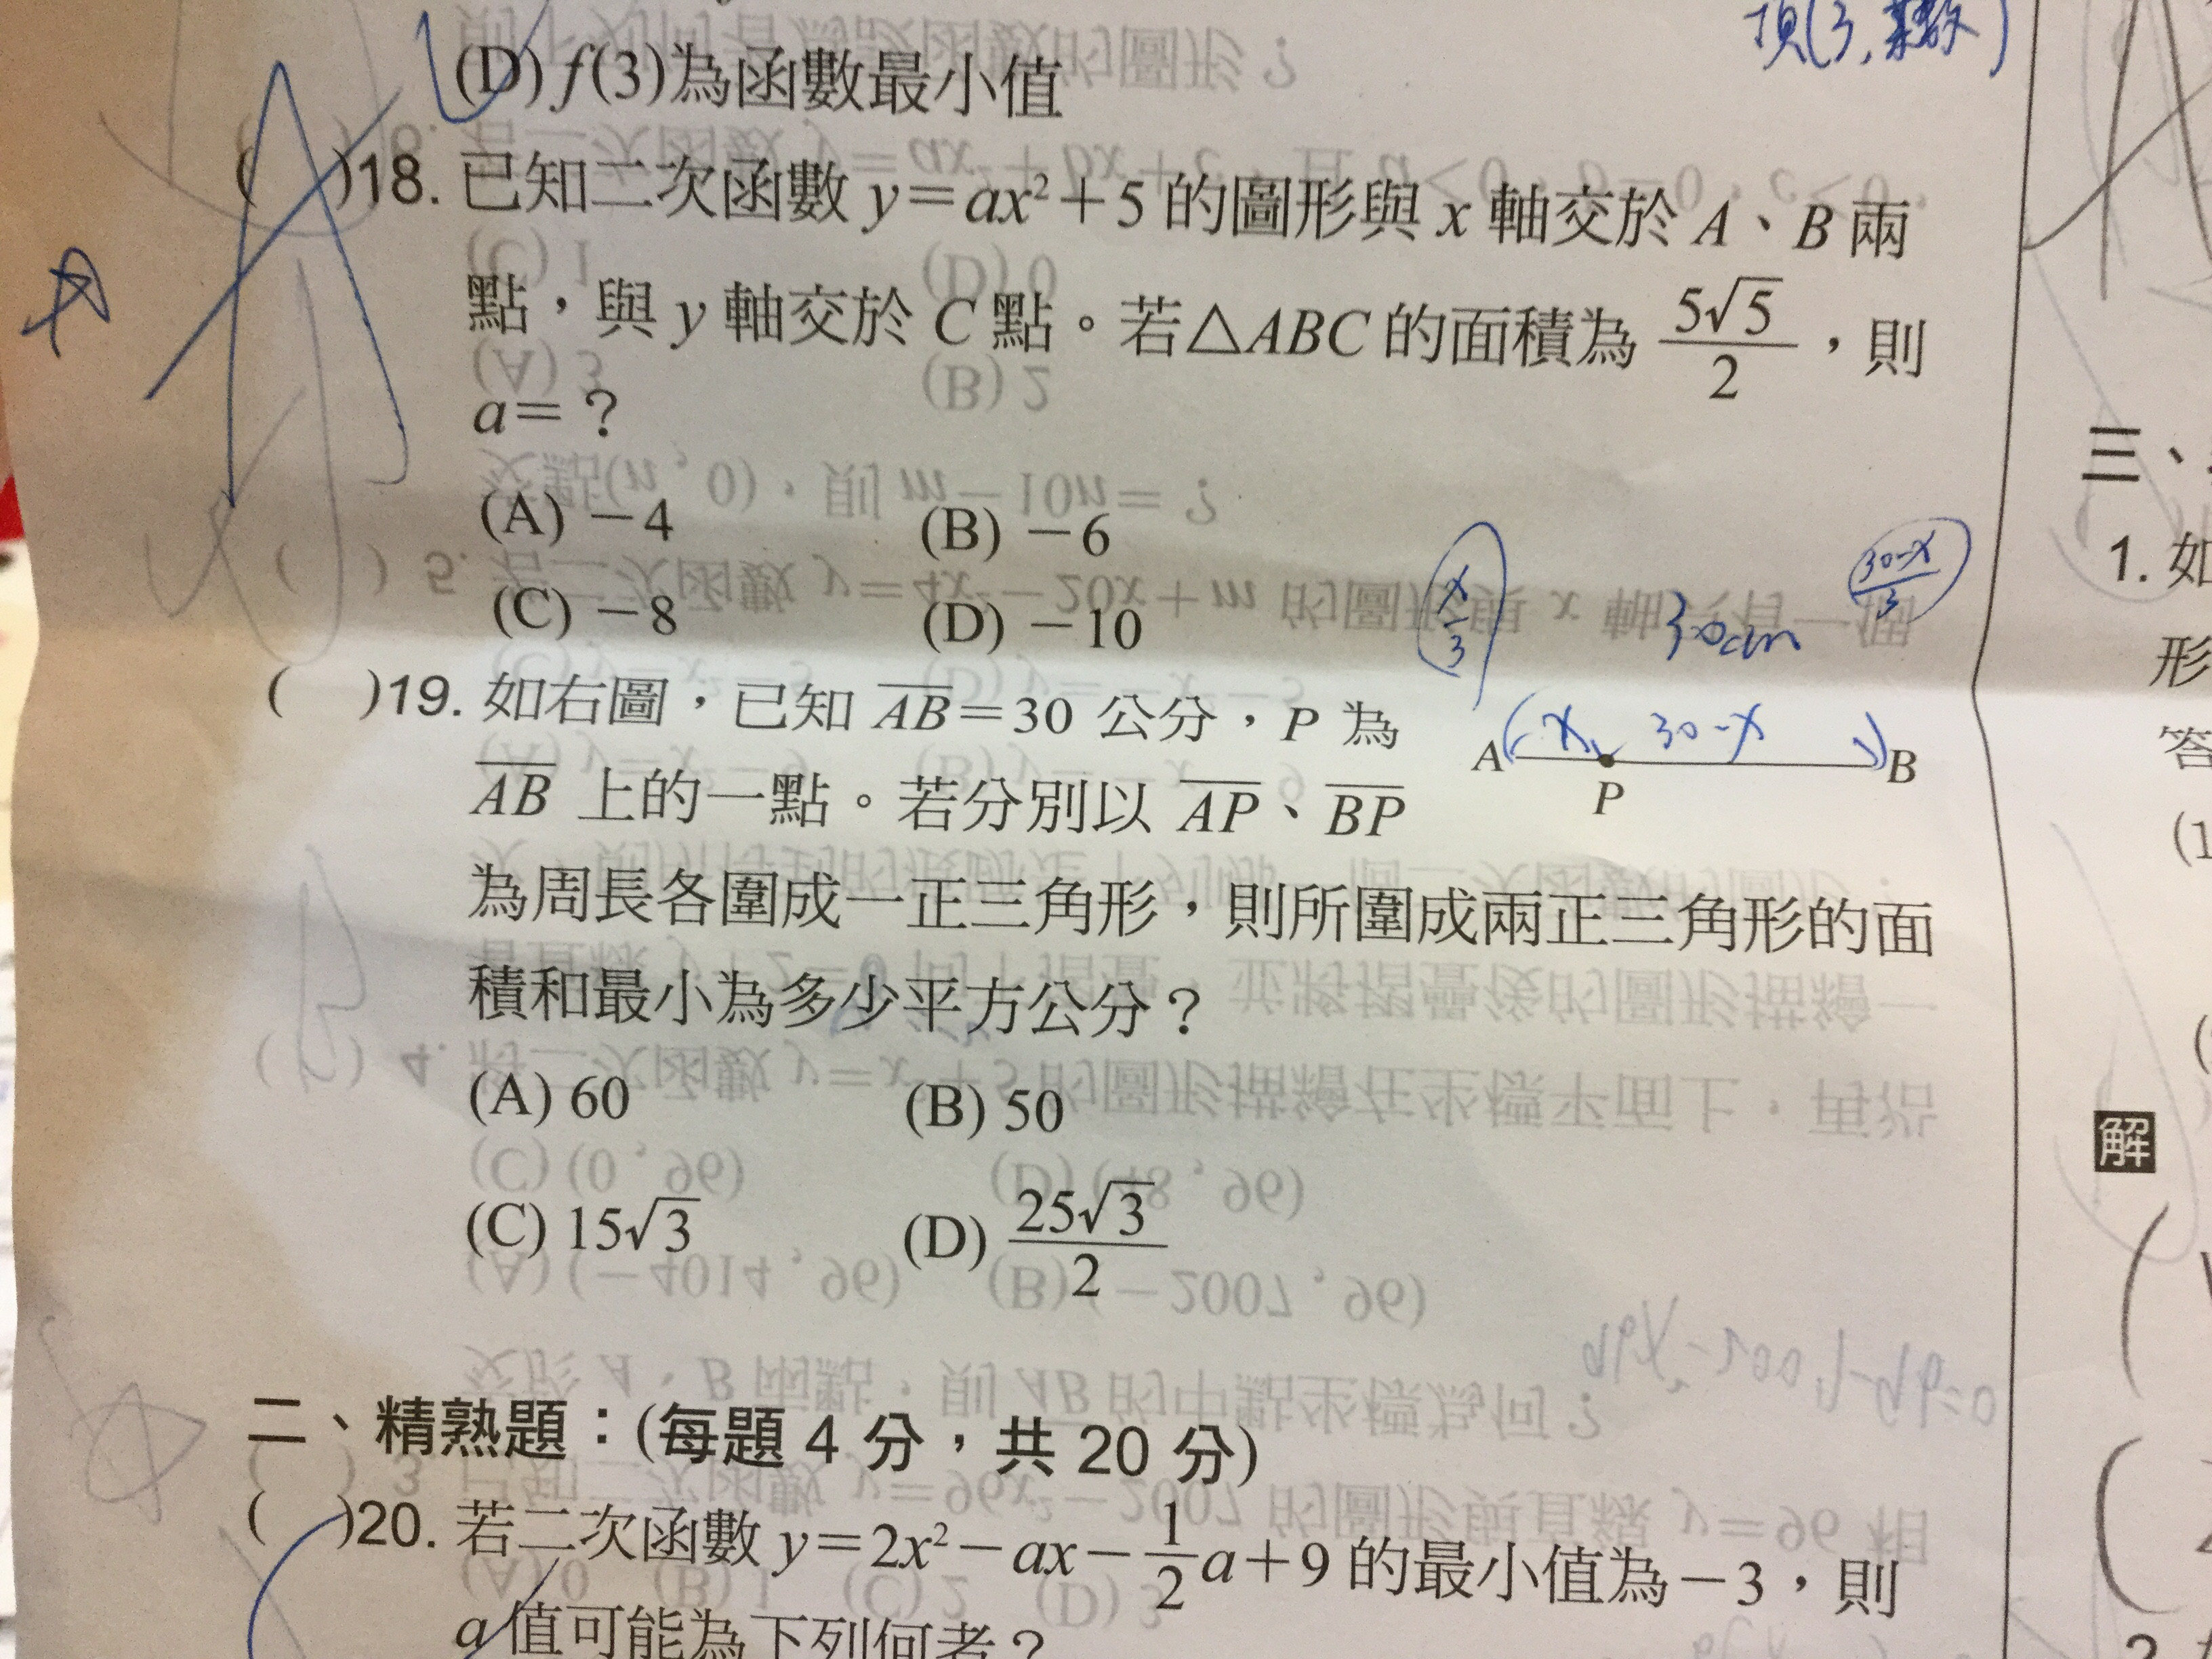 (D) f(3)為函數最小值
頂(3,
( )18. 已知二次函數 y=ax²+5 的圖形與 x 軸交於 A、B 兩
點，與 y 軸交於 C 點。若△ABC 的面積為 5√5/2，則
a=？
(A) −4 (B) −6
(C) −8 (D) −10
x/3 30cm (30-x)/3
( )19. 如右圖，已知 AB=30 公分，P 為
A x 30-x B
P
AB 上的一點。若分別以 AP、BP
為周長各圍成一正三角形，則所圍成兩正三角形的面
積和最小為多少平方公分？
(A) 60 (B) 50
(C) 15√3 (D) 25√3/2
二、精熟題：(每題 4 分，共 20 分)
( )20. 若二次函數 y=2x²−ax−1/2a+9 的最小值為−3，則
a 值可能為下列何者？
三、
1. 如
形
答
(1
解